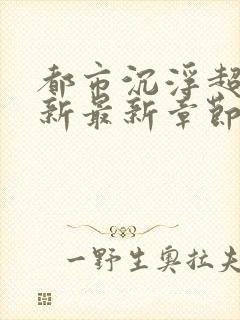 都市沉浮超
新最新章节
一野生奥拉夫